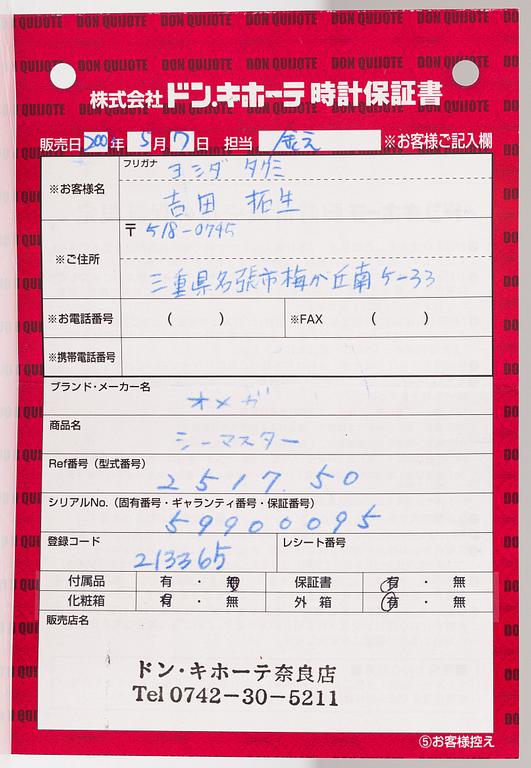 株式会社ドン.キホーテ 時計保証書
販売日 200 年 5月 7日 担当 ※お客様ご記入欄
フリガナ ヨシダ タクミ
※お客様名 吉田 拓生
〒518-0745
※ご住所
三重県名張市梅が丘南5-33
※お電話番号 ( ) ※FAX ( )
※携帯電話番号
ブランド・メーカー名
オメガ
商品名
シーマスター
Ref番号（型式番号）
2517.50
シリアルNo.（固有番号・ギャランティ番号・保証番号）
59900095
登録コード レシート番号
213365
付属品 有 ・ 無 保証書 有 ・ 無
化粧箱 有 ・ 無 外 箱 有 ・ 無
販売店名
ドン・キホーテ奈良店
Tel 0742-30-5211
⑤お客様控え